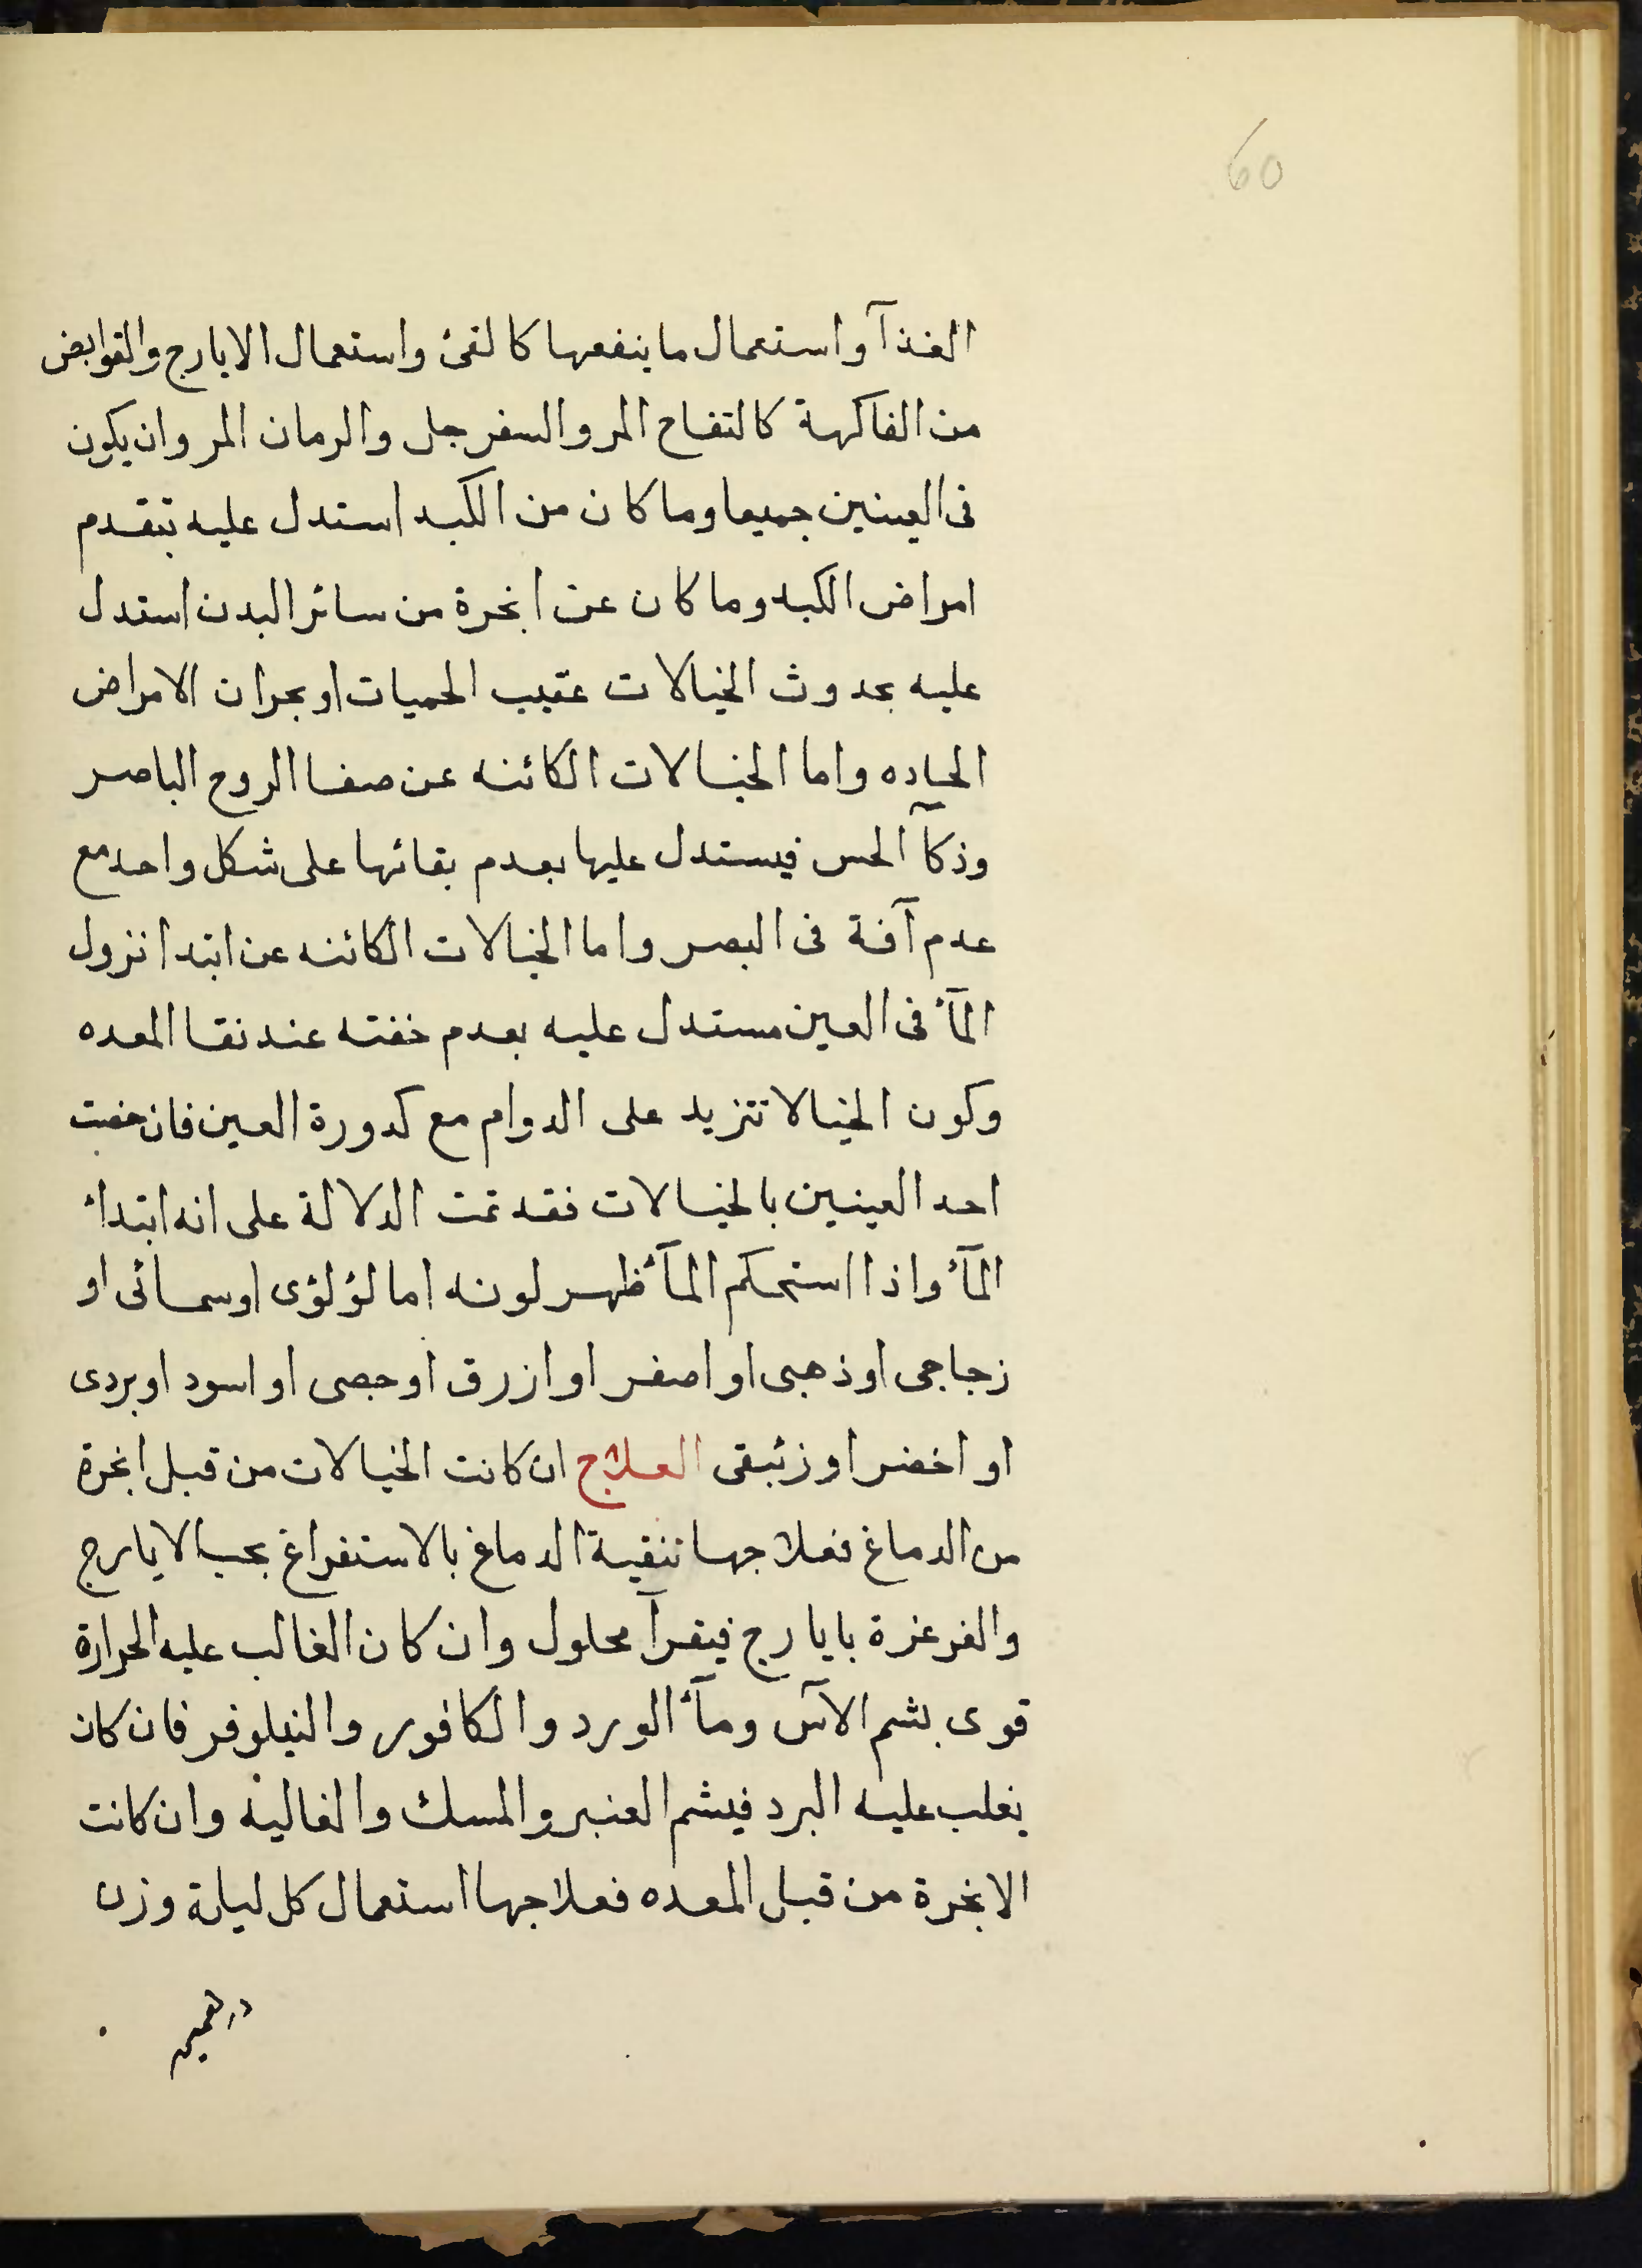 60
الغذآ واستعمال ما ينفعها كالقئ واستعمال الايارج والقوابض
من الفاكهة كالتفاح المر والسفرجل والرمان المر وان يكون
فى العينين جميعا وما كان من الكبد استدل عليه بتقدم
امراض الكبد وما كان عن ابخرة من سائر البدن استدل
عليه بحدوث الخيالات عقيب الحميات او بحران الامراض
الحاده واما الخيالات الكائنه عن صفا الروح الباصر
وذكآ الحس فيستدل عليها بعدم بقائها على شكل واحد مع
عدم آفة فى البصر واما الخيالات الكائنه عن ابتدا نزول
المآء فى العين مستدل عليه بعدم خفته عند نقا المعده
وكون الخيالا تتزيد على الدوام مع كدورة العين فان خصت
احد العينين بالخيالات فقد تمت الدلالة على انه ابتداء
المآء واذا استحكم المآء ظهر لونه اما لؤلؤى او سمائى او
زجاجى او ذهبى او اصفر او ازرق او جصى او اسود او بردى
او اخضر او زئبقى العلاج ان كانت الخيالات من قبل ابخرة
من الدماغ فعلاجها تنقية الدماغ بالاستفراغ بحب الايارج
والغرغرة بايارج فيقرآ محلول وان كان الغالب عليه الحرارة
قوى بشم الآس ومآء الورد والكافور والنيلوفر فان كان
يغلب عليه البرد فيشم العنبر والمسك والغالية وان كانت
الابخرة من قبل المعده فعلاجها استعمال كل ليلة وزن
درهمين